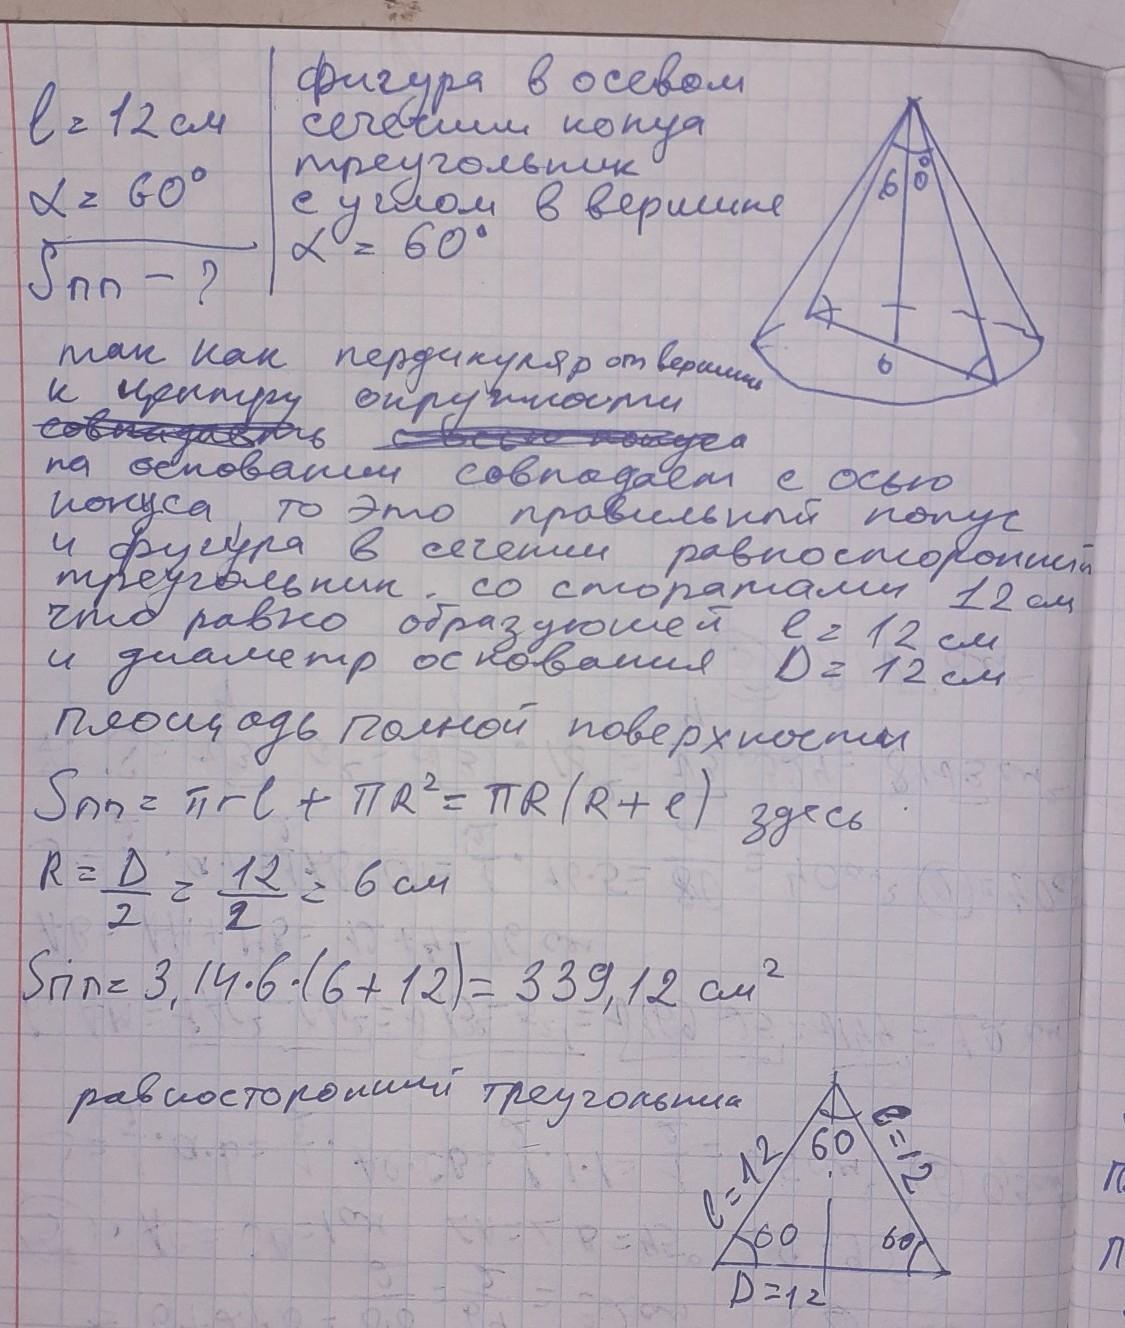 l = 12 см
α = 60°
Sпп - ?
фигура в осевом
сечении конуса
треугольник
с углом в вершине
α = 60°
60°
6
так как пердикуляр от вершины
к центру окружности
на основании совпадает с осью
конуса, то это правильный конус
и фигура в сечении равносторонний
треугольник. со сторатами 12 см
что равно образующей l = 12 см
и диаметр основания D = 12 см
площадь полной поверхности
Sпп = πrl + πR² = πR(R + l) здесь
R = D/2 = 12/2 = 6 см
Sпп = 3,14·6·(6 + 12) = 339,12 см²
равносторонний треугольник
60
l = 12
l = 12
60
60
D = 12